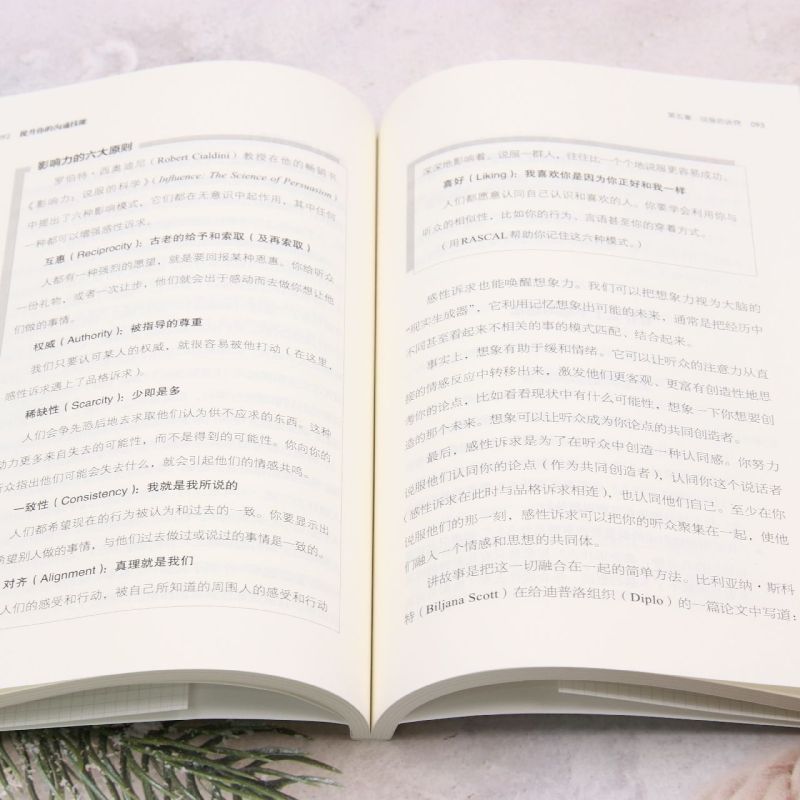 092 提升你的沟通技能
影响力的六大原则
罗伯特·西奥迪尼（Robert Cialdini）教授在他的畅销书
《影响力：说服的科学》（Influence: The Science of Persuasion）
中提出了六种影响模式，它们都在无意识中起作用，其中任何
一种都可以增强感性诉求。
互惠（Reciprocity）：古老的给予和索取（及再索取）
人都有一种强烈的愿望，就是要回报某种恩惠。你给听众
一份礼物，或者一次让步，他们就会出于感动而去做你想让他
们做的事情。
权威（Authority）：被指导的尊重
我们只要认可某人的权威，就很容易被他打动（在这里，
感性诉求遇上了品格诉求）。
稀缺性（Scarcity）：少即是多
人们会争先恐后地去求取他们认为供不应求的东西。这种
动力更多来自失去的可能性，而不是得到的可能性。你向你的
听众指出他们可能会失去什么，就会引起他们的情感共鸣。
一致性（Consistency）：我就是我所说的
人们都希望现在的行为被认为和过去的一致。你要显示出
希望别人做的事情，与他们过去做过或说过的事情是一致的。
对齐（Alignment）：真理就是我们
人们的感受和行动，被自己所知道的周围人的感受和行动
第五章 说服的诀窍 093
深深地影响着。说服一群人，往往比一个个地说服更容易成功。
喜好（Liking）：我喜欢你是因为你正好和我一样
人们都愿意认同自己认识和喜欢的人。你要学会利用你与
听众的相似性，比如你的行为、言语甚至你的穿着方式。
（用RASCAL帮助你记住这六种模式。）
感性诉求也能唤醒想象力。我们可以把想象力视为大脑的
“现实生成器”，它利用记忆想象出可能的未来，通常是把经历中
不同甚至看起来不相关的事的模式匹配、结合起来。
事实上，想象有助于缓和情绪。它可以让听众的注意力从直
接的情感反应中转移出来，激发他们更客观、更富有创造性地思
考你的论点，比如看看现状中有什么可能性，想象一下你想要创
造的那个未来。想象可以让听众成为你论点的共同创造者。
最后，感性诉求是为了在听众中创造一种认同感。你努力
说服他们认同你的论点（作为共同创造者），认同你这个说话者
（感性诉求在此时与品格诉求相连），也认同他们自己。至少在你
说服他们的那一刻，感性诉求可以把你的听众聚集在一起，使他
们融入一个情感和思想的共同体。
讲故事是把这一切融合在一起的简单方法。比利亚纳·斯科
特（Biljana Scott）在给迪普洛组织（Diplo）的一篇论文中写道：